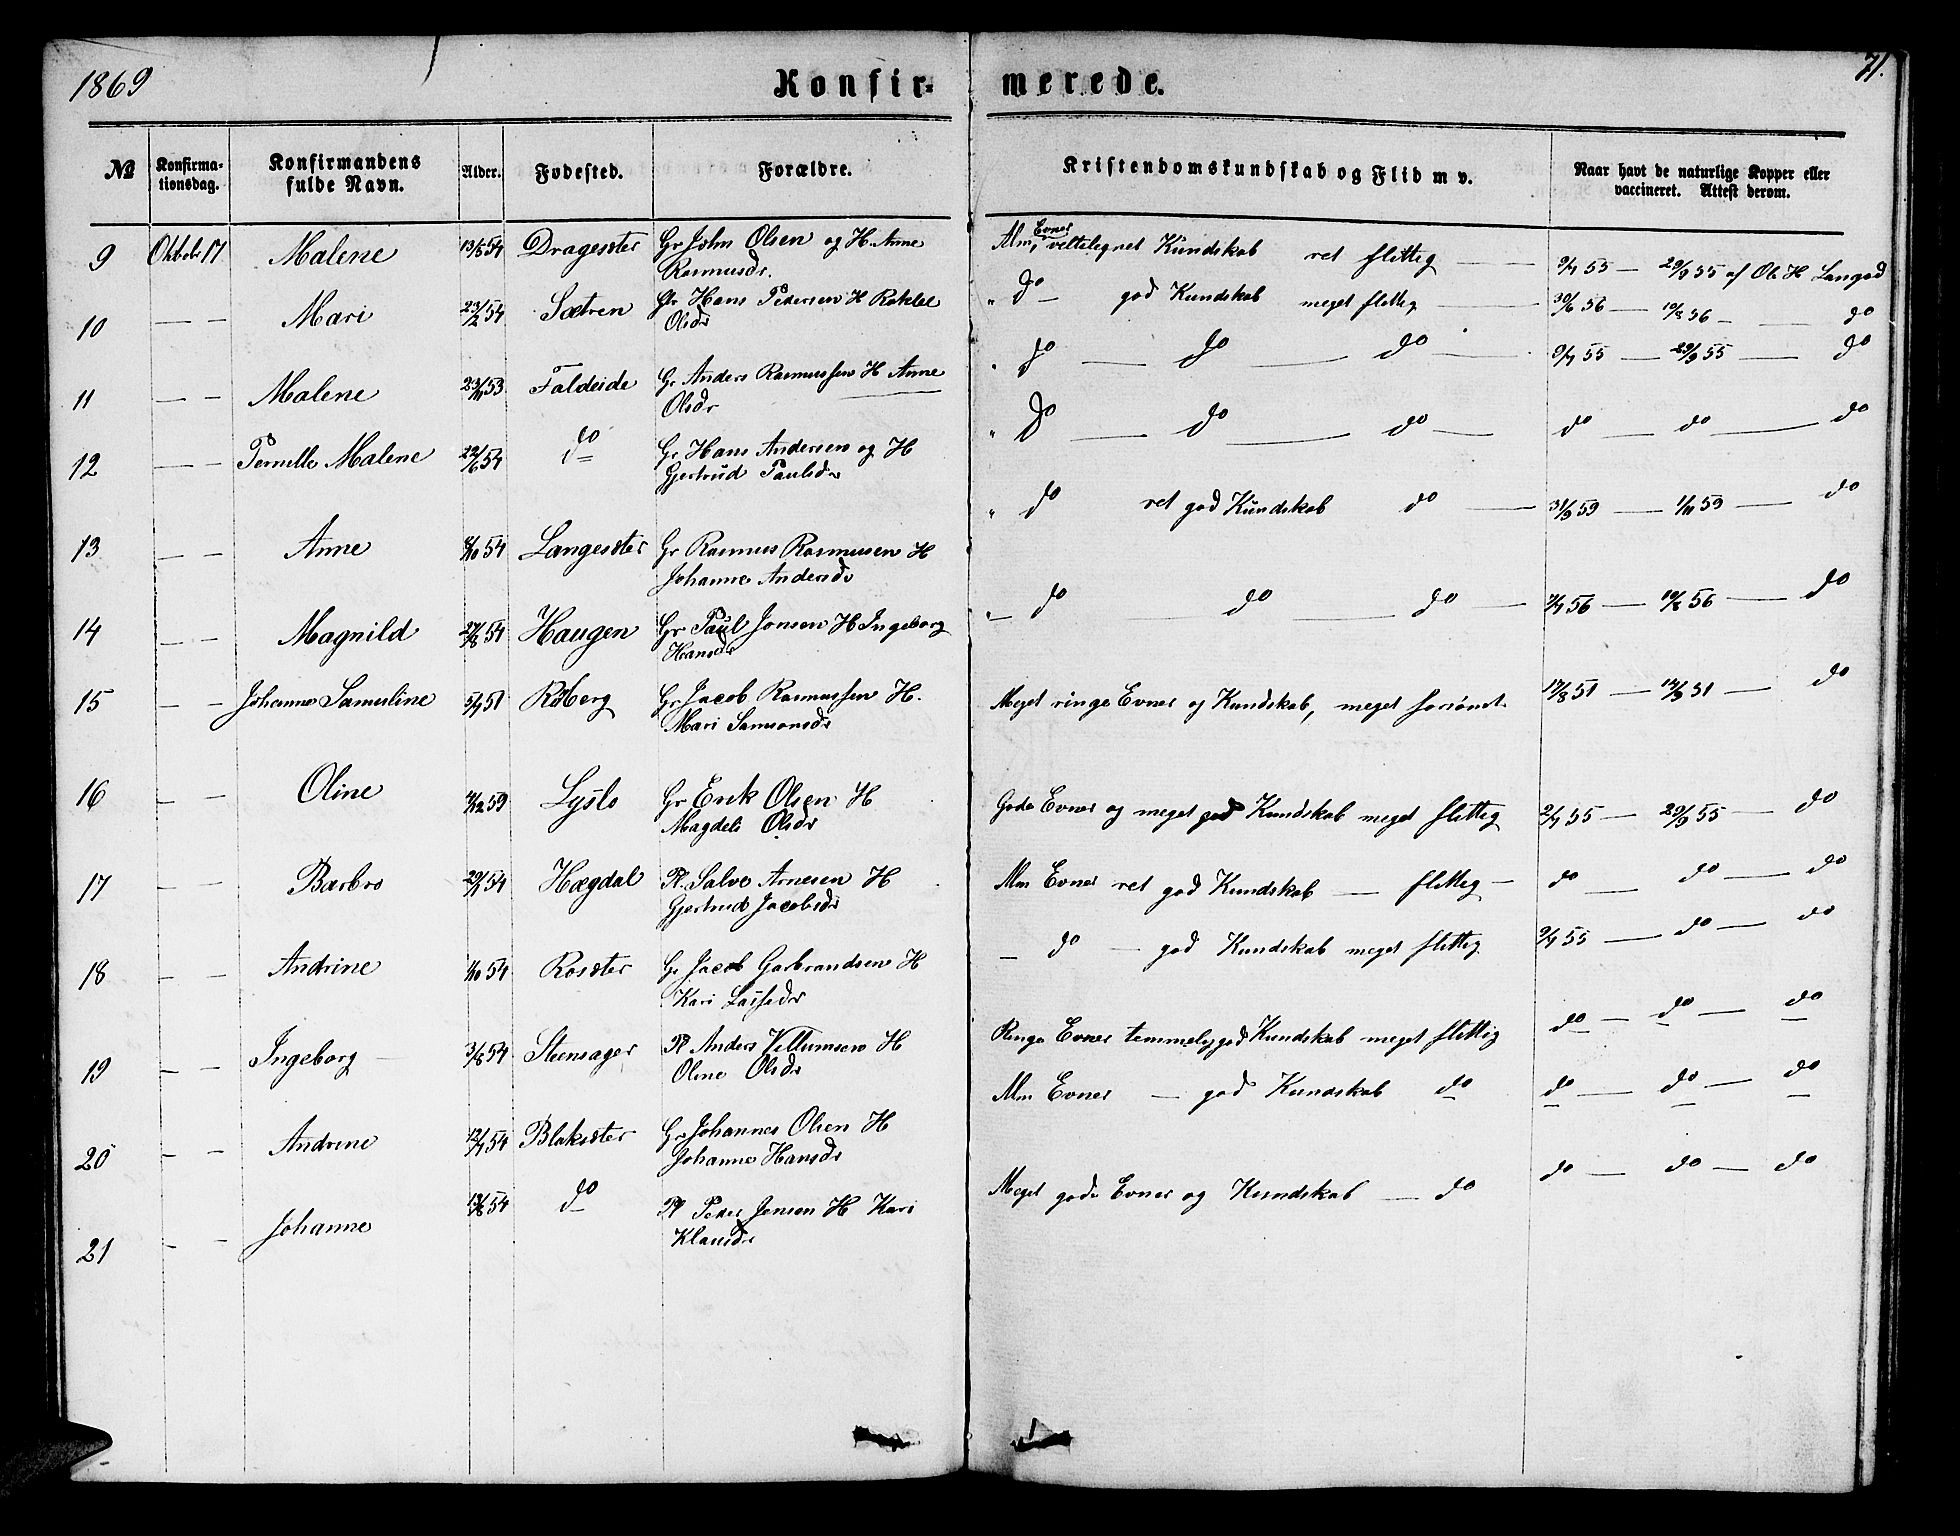 1869
Konfir=
merede.
71.
No
Konfirma-
tionsdag.
Konfirmandens
fulde Navn.
Alder.
Fødested.
Forældre.
Kristendomskundskab og Flid m v.
Naar havt de naturlige Kopper eller
vaccineret. Attest derom.
9 Oktober 17 Malene 13/5 54 Dragesæter Gr John Olsen og H. Anne
Rasmusdr.
Alm. Evner veltilegnet Kundskab ret flittig — 9/7 55 — 29/9 55 af Ol. H Langød
10 — — Mari 23/2 54 Sætren Gr Hans Pedersen H Rakkel
Olsdr
" do — god Kundskab meget flittig — 30/6 56 — 10/8 56 — do
11 — — Malene 23/11 53 Faldeide Gr Anders Rasmussen H Anne
Olsdr
" do — do — do — 9/7 55 — 29/9 55 — do
12 — — Pernille Malene 22/6 54 do Gr Hans Andersen og H
Gjertrud Paulsdr
" do — do — do — do — do — do
13 — — Anne 54 Langesæter Gr Rasmus Rasmusen H
Johanne Andersdr
" do ret god Kundskab do — 31/9 59 — 1/11 59 — do
14 — — Magnild 27/8 54 Haugen Gr Paul Jonsen H Ingeborg
Hansdr
" do — do — do — 7/7 56 — 10/8 56 — do
15 — — Johanne Samuline 5/7 51 Råberg Gr Jacob Rasmussen H.
Mari Samsonsdr
Meget ringe Evner og Kundskab, meget forsømt 17/8 51 — 14/9 51 — do
16 — — Oline Lyslo Gr Erik Olsen H
Magdeli Olsdr
Gode Evner og meget god Kundskab meget flittig 2/7 55 — 29/9 55 — do
17 — — Barbro 54 Hægdal Pl. Salve Arnesen H
Gjertrud Jacobsdr
Alm Evner ret god Kundskab — flittig — do — do — do
18 — — Andrine 54 Rosæter Gr Jacob Garbrandsen H
Kari Lassedr
— do — god Kundskab meget flittig 9/7 55 — do — do
19 — — Ingeborg — 3/8 54 Steensager Pl Anders Villumsen H
Oline Olsdr
Ringe Evner temmelig god Kundskab meget flittig do — do — do
20 — — Andrine 12/7 54 Blaksæter Gr Johannes Olsen H
Johanne Hansdr
Alm Evner — god Kundskab do do — do — do
21 — — Johanne 54 do Pl Peder Jensen H Kari
Klausdr
Meget gode Evner og Kundskab — do do — do — do